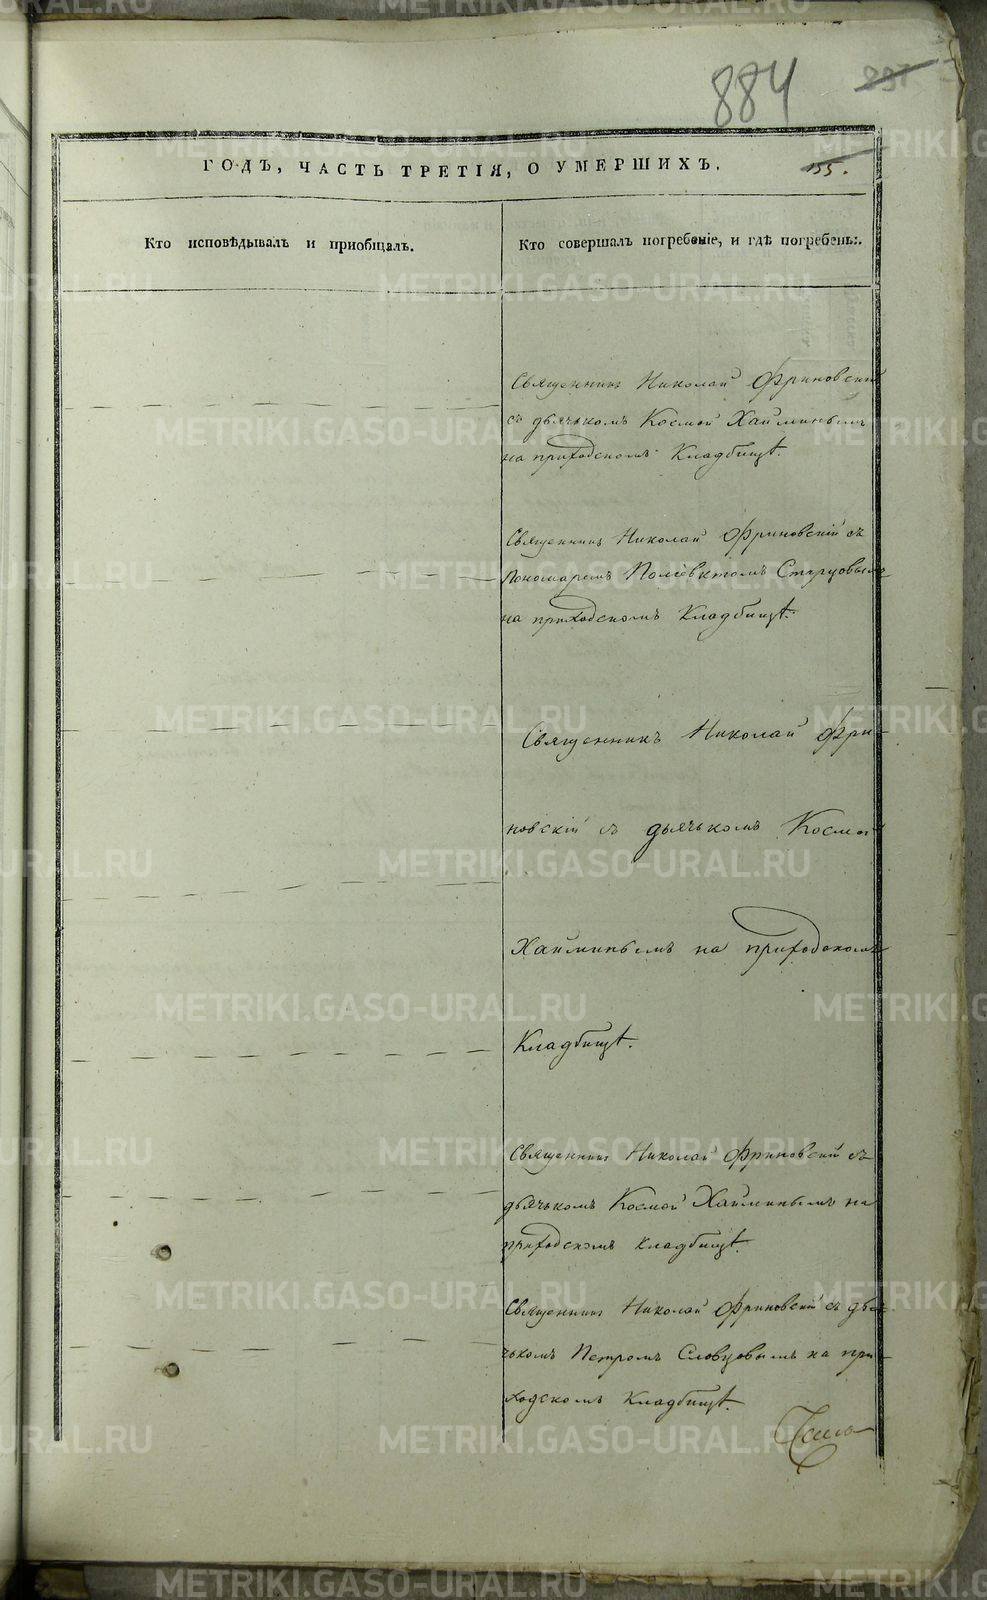 884
ГОДЪ, ЧАСТЬ ТРЕТІЯ, О УМЕРШИХЪ.
155.
Кто исповѣдывалъ и пріобщалъ.
Кто совершалъ погребеніе, и гдѣ погребены.
Священникъ Николай Фриновскій
съ дьячькомъ Космой Хайминымъ
на приходскомъ Кладбищѣ.
Священникъ Николай Фриновскій съ
Пономаремъ Полієвктомъ Старцовымъ
на приходскомъ Кладбищѣ.
Священникъ Николай Фри-
новскій съ дьячькомъ Космой
Хайминымъ на приходскомъ
Кладбищѣ.
Священникъ Николай Фриновскій съ
дьячькомъ Космой Хайминымъ на
приходскомъ кладбищѣ.
Священникъ Николай Фриновскій съ дья-
чькомъ Петромъ Словцовымъ на при-
ходскомъ Кладбищѣ.
METRIKI.GASO-URAL.RU